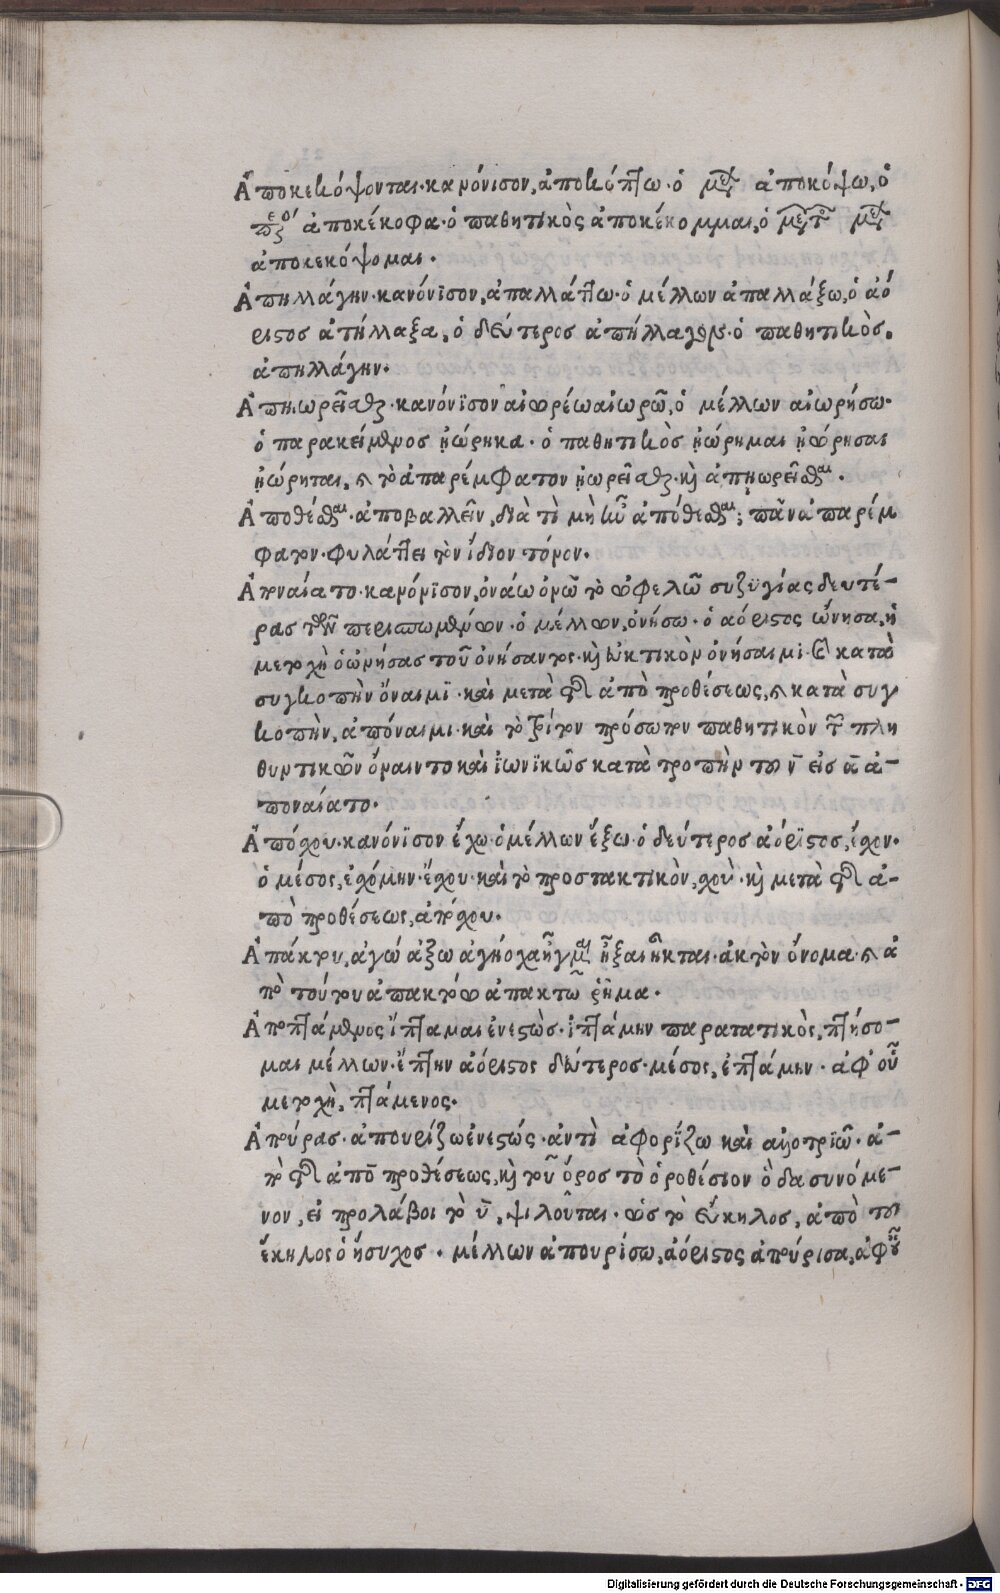 Ἀποκεκόψονται· κανόνισον, ἀποκόπτω· ὁ μέλλων ἀποκόψω, ὁ
ἀποκέκοφα· ὁ παθητικὸς ἀποκέκομμαι, ὁ
ἀποκεκόψομαι.
Ἀπηλλάγην· κανόνϊσον, ἀπαλλάττω· ὁ μέλλων ἀπαλλάξω, ὁ ἀό
ριστος ἀπήλλαξα, ὁ δεύτερος ἀπήλλαγον· ὁ παθητικὸς.
ἀπηλλάγην.
Ἀπῃωρεῖσθαι· κανόνϊσον αἰωρέω αἰωρῶ, ὁ μέλλων αἰωρήσω·
ὁ παρακείμενος ᾐώρηκα· ὁ παθητικὸς ᾐώρημαι ᾐώρησαι
ᾐώρηται, καὶ τὸ ἀπαρέμφατον ᾐωρεῖσθαι· καὶ ἀπῃωρεῖσθαι.
Ἀποθέσθαι· ἀποβαλλεῖν, διὰ τὶ μὴ κἂν ἀπόθεσθαι; πᾶν ἀπαρέμ
φατον· φυλάττει τὸν ἴδιον τόνον.
Ἀπναίατο· κανόνϊσον, ὀνάω ὀνῶ τὸ ὠφελῶ συζυγίας δευτέ-
ρας τῶν περισπωμένων· ὁ μέλλων, ὀνήσω· ὁ ἀόριστος ὤνησα, ἡ
μετοχὴ ὁ ὠνήσας τοῦ ὀνήσαντος· καὶ εὐκτικὸν ὀνήσαιμι· καὶ κατὰ
συγκοπὴν ὄναιμϊ· καὶ μετὰ τῆς ἀπὸ προθέσεως, καὶ κατὰ συγ
κοπὴν, ἀπόναιμι· καὶ τὸ τρίτον πρόσωπον παθητικὸν τῶν πλη
θυντικῶν ὄναιντο καὶ ἰωνϊκῶς κατὰ τροπὴν τοῦ ν εἰς α ἀ-
ποναίατο.
Ἀπόχου· κανόνϊσον ἔχω· ὁ μέλλων ἕξω· ὁ δεύτερος ἀόρϊστος, ἔχον·
ὁ μέσος, ἐχόμην· ἔχου· καὶ τὸ προστακτικὸν, χοὺ· καὶ μετὰ τῆς ἀ-
πὸ προθέσεως, ἀπόχου.
Ἀπάκτου, ἀγώ ἀξω ἀγήοχα ἦγμαι ἦξαι ἦκται· ἀκτὸν ὄνομα· καὶ ἀ
πὸ τούτου ἀπακτόω ἀπακτῶ ῥῆμα.
Ἀποπτάμενος ἵπταμαι ἐνεστὼς· ἱπτάμην παρατατικὸς, πτήσο-
μαι μέλλων· ἔπτην ἀόριστος δεύτερος· μέσος, ἐπτάμην· ἀφ' οὗ
μετοχὴ, πτάμενος.
Ἀπούρας· ἀπουρίζω ἐνεστώς· ἀντὶ ἀφορίζω καὶ ἀλλοτριῶ· ἀ-
πὸ τῆς ἀπὸ προθέσεως, καὶ τοῦ ὅρος τὸ ὁροθέσιον ὃ δασυνόμε-
νον, εἰ προλάβοι τὸ ῦ, ψιλοῦται· ὡς τὸ εὔκηλος, ἀπὸ τοῦ
ἕκηλος ὁ ἥσυχος. μέλλων ἀπουρίσω, ἀόριστος ἀπούρισα, ἀφ' οὗ